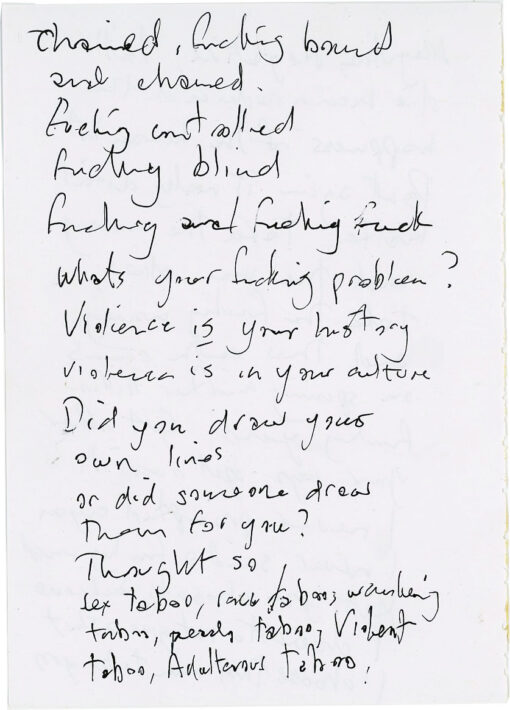 chained, fucking bound
and chained.
fucking controlled
fucking blind
fucking and fucking fuck
whats your fucking problem?
Violience is your history
violence is in your culture
Did you draw your
own lines
or did someone draw
them for you?
Thought so,
sex taboo, race taboo,
taboo, taboo, Violent
taboo, Adulterous taboo,